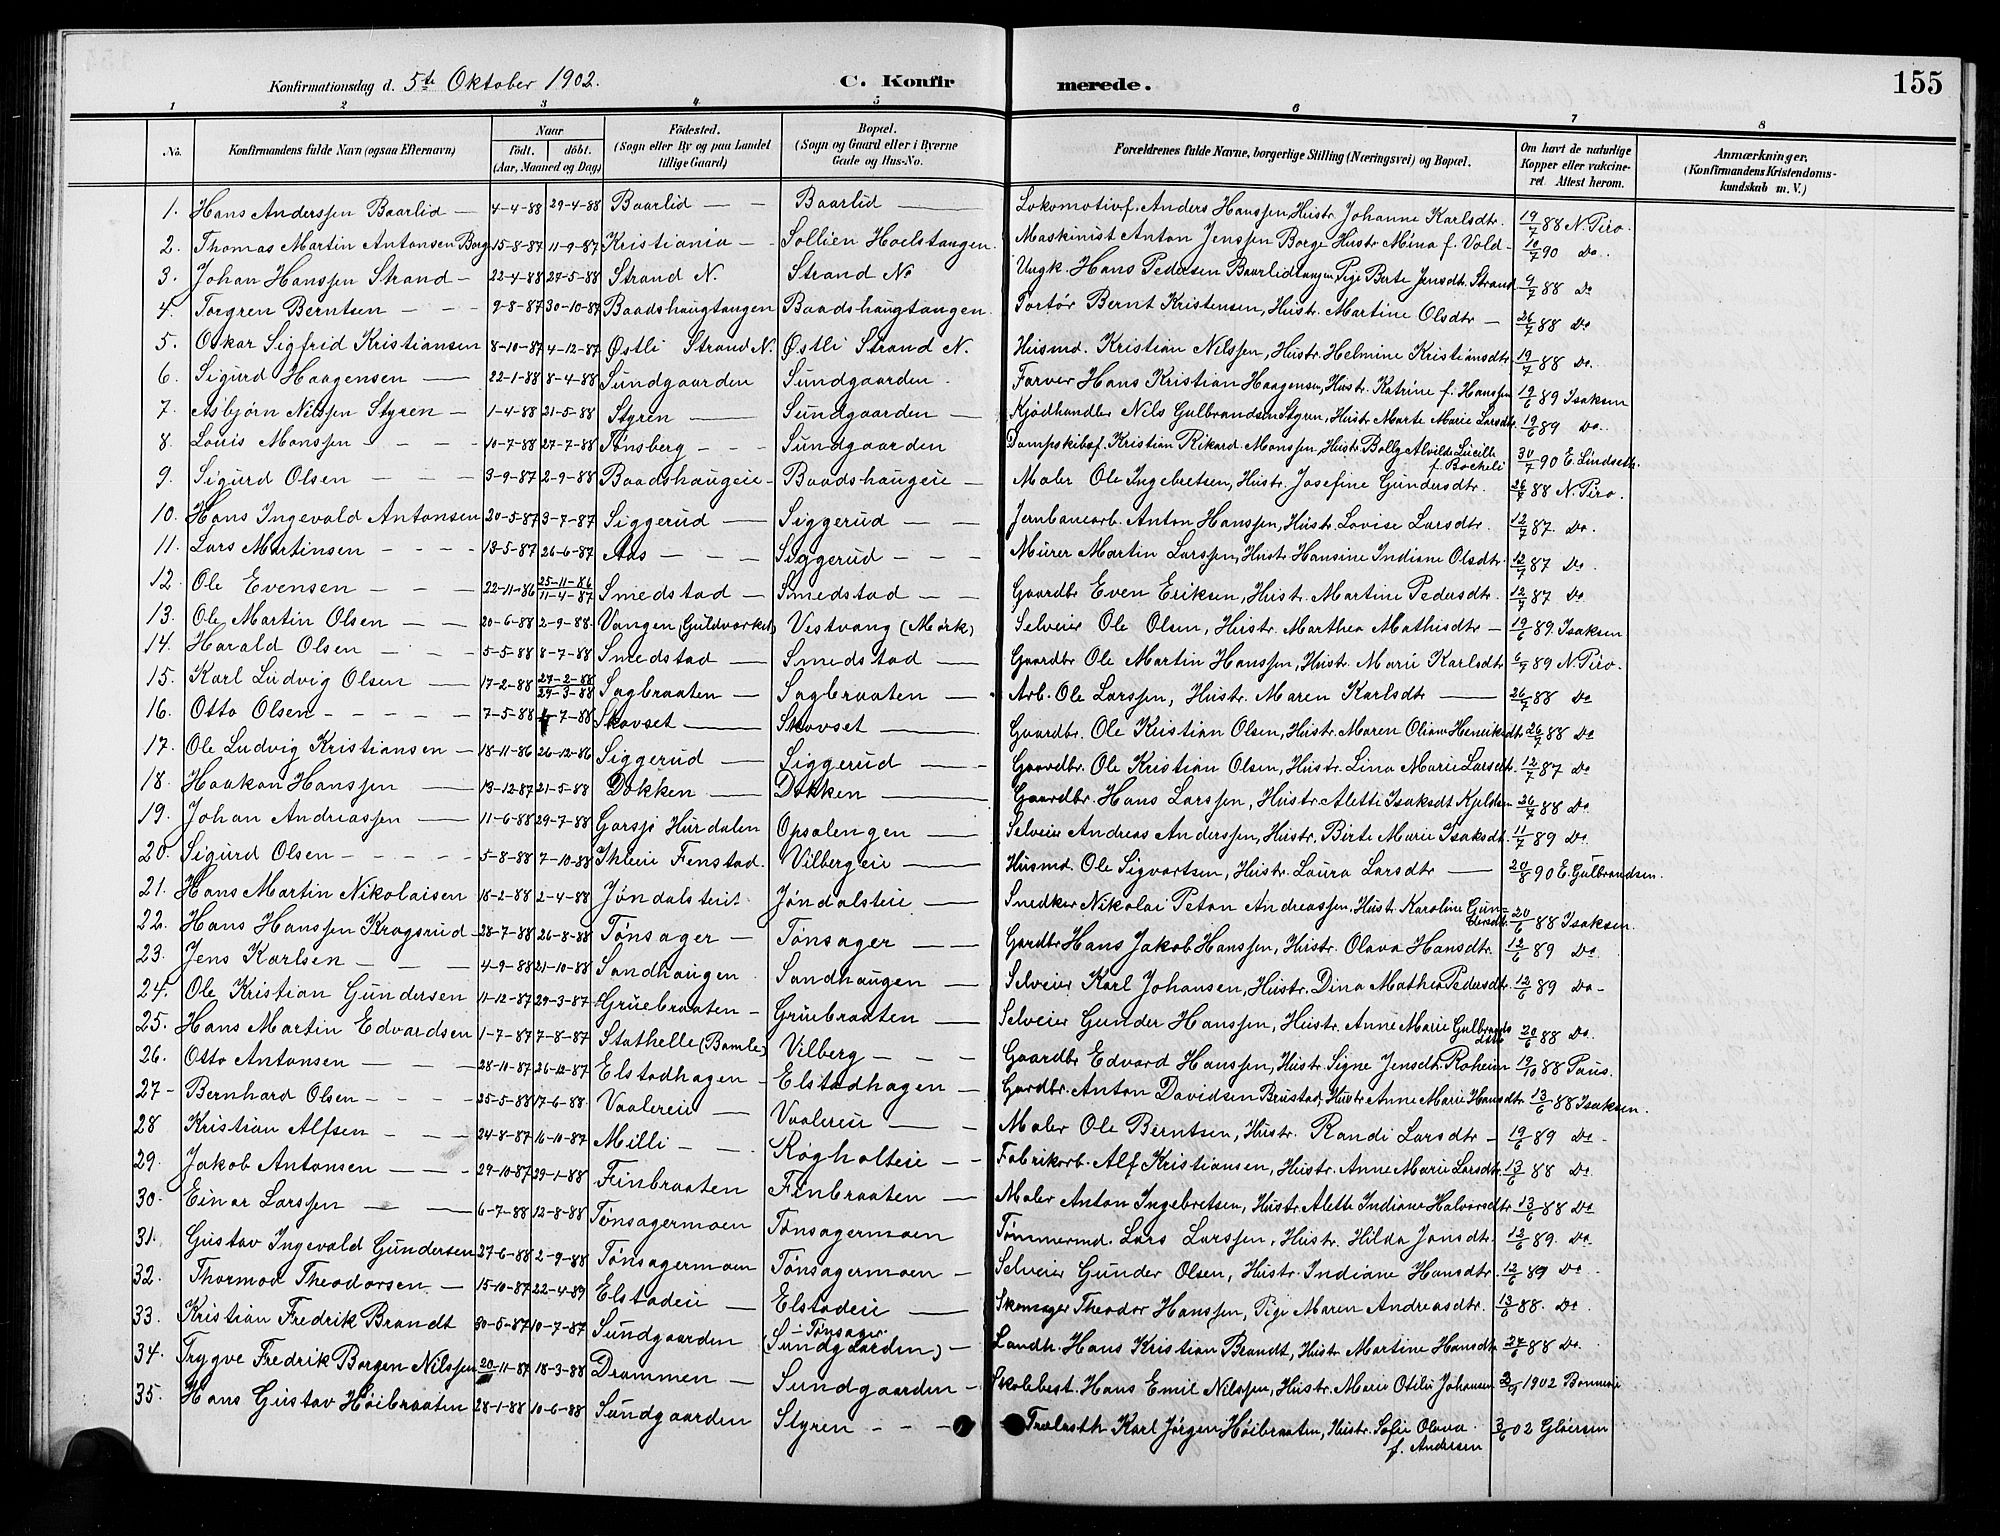 155
Konfirmationsdag d. 5te Oktober 1902. C. Konfirmerede.
1 2 3 4 5 6 7 8
No. Konfirmandens fulde Navn (ogsaa Efternavn) Naar Födt. döbt. (Aar, Maaned og Dag) Födested. (Sogn eller By og paa Landet tillige Gaard) Bopæl. (Sogn og Gaard eller i Byerne Gade og Hus-No. Forældrenes fulde Navne, borgerlige Stilling (Næringsvei) og Bopæl. Om havt de naturlige Kopper eller vakcineret Attest herom. Anmærkninger. (Konfirmandens Kristendomskundskab m. V.)
1. Hans Anderssen Baarlid 4-4-88 29-4-88 Baarlid Baarlid Lokomotivf. Anders Hanssen, Hustr. Johanne Karlsdtr. 19/7 88 N. Piro.
2. Thomas Martin Antonsen Borg 15-8-87 11-9-87 Kristiania Sollien Hoelstangen. Maskinist Anton Jenssen Borge Hustr. Mina f. Vold 10/7 90 Do.
3. Johan Hanssen Strand 22-4-88 27-5-88 Strand N. Strand No Ungk. Hans Pedersen Baarlidtangen Pige Berte Jensdtr. Strand 9/7 88 Do
4. Torgren Berntsen 9-8-87 30-10-87 Baadshaugtangen Baadshaugtangen. Bernt Kristensen, Hustr. Martine Olsdtr 26/7 88 Do
5. Oskar Sigfrid Kristiansen 8-10-87 4-12-87 Østli Strand N. Østli Strand N. Husmd. Kristian Nilssen, Hustr. Helmine Kristiansdtr 19/7 88 Do.
6. Sigurd Haagensen 22-1-88 8-4-88 Sundgaarden Sundgaarden. Farver Hans Kristian Haagensen, Hustr. Katrine f. Hanssen 19/6 89 Isaksen
7. Asbjørn Nilssen Styren 1-4-88 21-5-88 Styren Sundgaarden Kjødhandler Nils Gulbrandsen Styren, Hustr. Marte Marie Larsdtr 19/6 89 Do.
8. Louis Monssen 10-7-88 27-7-88 Tønsberg Sundgaarden Dampskibsf. Kristian Rikard Monssen, Hustr. Bolly Alvilde Lucille f. Bockeli 30/7 90 E. Lindseth.
9. Sigurd Olsen 3-9-87 2-9-88 Baadshaugeie Baadshaugeie Maler Ole Ingebretsen, Hustr. Josefine Gundersdtr. 26/7 88 N. Piro.
10. Hans Ingevald Antonsen 20-5-87 3-7-87 Siggerud Siggerud Jernbanearb. Anton Hanssen, Hustr. Lovise Larsdtr. 12/7 87. Do.
11. Lars Martinsen 13-5-87 26-6-87 Aas Siggerud Murer Martin Larssen, Hustr. Hansine Indiane Olsdtr. 12/7 87 Do
12. Ole Evensen 22-11-86 25-11-86 11-4-87 Smedstad Smedstad Gaardbr Even Eriksen, Hustr. Martine Pedersdtr. 12/7 87 Do
13. Ole Martin Olsen 20-6-88 2-9-88. Vangen (Guldverket) Vestvang (Mørk) Selveier Ole Olsen, Hustr. Marthea Mathisdtr 19/6 89. Isaksen
14. Harald Olsen 5-5-88 8-7-88 Smedstad Smedstad Gaardbr Ole Martin Hanssen, Hustr. Marie Karlsdtr 6/7 89 N. Piro.
15. Karl Ludvig Olsen 17-2-88 27-2-88 29-3-88 Sagbraaten Sagbraaten Arb. Ole Larssen, Hustr. Maren Karlsdtr 26/7 88 Do
16. Otto Olsen 7-5-88 -7-88 Skovset Skovset Gaardbr. Ole Kristian Olsen, Hustr. Maren Oliane Henriksdtr 26/7 88 Do
17. Ole Ludvig Kristiansen 18-11-86 26-12-86 Siggerud Siggerud Gaardbr. Ole Kristian Olsen, Hustr. Lina Marie Larsdtr. 12/7 87 Do
18. Haakon Hanssen 13-12-87 21-5-88 Dokken Dokken Gaardbr. Hans Larssen, Hustr. Aletti Isaksdt Kjeldsen 26/7 88 Do
19. Johan Andreassen 11-6-88 29-7-88 Garsjø Hurdalen Opsalengen Selveier Andreas Anderssen, Hustr. Birte Marie Isaksdt. 11/7 89 Do.
20. Sigurd Olsen 5-8-88 7-10-88 Ihleie Fenstad. Vilbergeie Husmd. Ole Sigvartsen, Hustr. Laura Larsdtr 20/8 90 E. Gulbrandsen.
21. Hans Martin Nikolaisen 18-2-88 2-4-88 Jøndalsteit Jøndalsteie Snedker Nikolai Petan Andreassen, Hustr. Karoline Gundersdtr 20/6 88 Isaksen
22. Hans Hanssen Kragsrud 28-7-88 26-8-88 Tønsager Tønsager Gardbr Hans Jakob Hanssen, Hustr. Olava Hansdtr. 12/6 89 Do.
23. Jens Karlsen 4-9-88 21-10-88 Sandhaugen Sandhaugen Selveier Karl Johansen, Hustr. Dina Mathea Pedersdtr 12/6 89 Do
24. Ole Kristian Gundersen 11-12-87 29-3-87 Gruebraaten Gruebraaten Selveier Gunder Hanssen, Hustr. Anne Marie Gulbrandsdtr 20/6 88 Do.
25. Hans Martin Edvardsen 1-7-87 7-8-87 Stathelle (Bamle) Vilberg Gaardbr Edvard Hanssen, Hustr. Signe Jensdtr. Roheim 19/10 88 Paus.
26. Otto Antonsen 28-10-87 26-12-87 Elstadhagen Elstadhagen Gardbr. Anton Davidsen Brustad, Hustr Anne Marie Hansdtr 13/6 88 Isaksen.
27 Bernhard Olsen 25-5-88 17-6-88 Vaalereie Vaalereie Maler Ole Berntsen, Hustr. Randi Larsdtr 19/6 89 Do
28 Kristian Alfsen 24-8-87 16-10-87 Milli Røgholteie Fabrikarb. Alf Kristiansen, Hustr. Anne Marie Larsdtr 13/6 88 Do.
29. Jakob Antonsen 29-10-87 29-1-88 Finbraaten Finbraaten Maler Anton Ingebretsen, Hustr. Alette Indiane Halvorsdtr 13/6 88 Do
30. Einar Larssen 6-7-88 12-8-88 Tønsagermoen Tønsagermoen Tømmermd. Lars Larssen, Hustr. Hilda Jonsdtr. 12/6 89. Do
31. Gustav Ingevald Gundersen 27-6-88 2-9-88 Tønsagermoen Tønsagermoen Selveier Gunder Olsen, Hustr. Indiane Hansdtr. 12/6 89 Do
32. Thormod Theodorsen 15-10-87 22-4-89 Elstadeie Elstadeie Skomager Theodor Hanssen, Pige Maren Andreasdtr. 13/6 88. Do
33. Kristian Fredrik Brandt 30-5-87 10-7-87 Sundgaarden Tønsager (Sundgaarden) Landh. Hans Kristian Brandt, Hustr. Martine Hansdtr 27/6 88 Do
34. Trygve Fredrik Borgen Nilssen 20-11-87 18-3-88 Drammen Sundgaarden Skolebest. Hans Emil Nilssen, Hustr. Marie Otilie Johansen 1902
35. Hans Gustav Høibraaten 28-1-88 10-6-88 Sundgaarden Styren Trælasth Karl Jørgen Høibraaten, Hustr. Sofie Olava f. Andersen 3/6 02 Gløersen